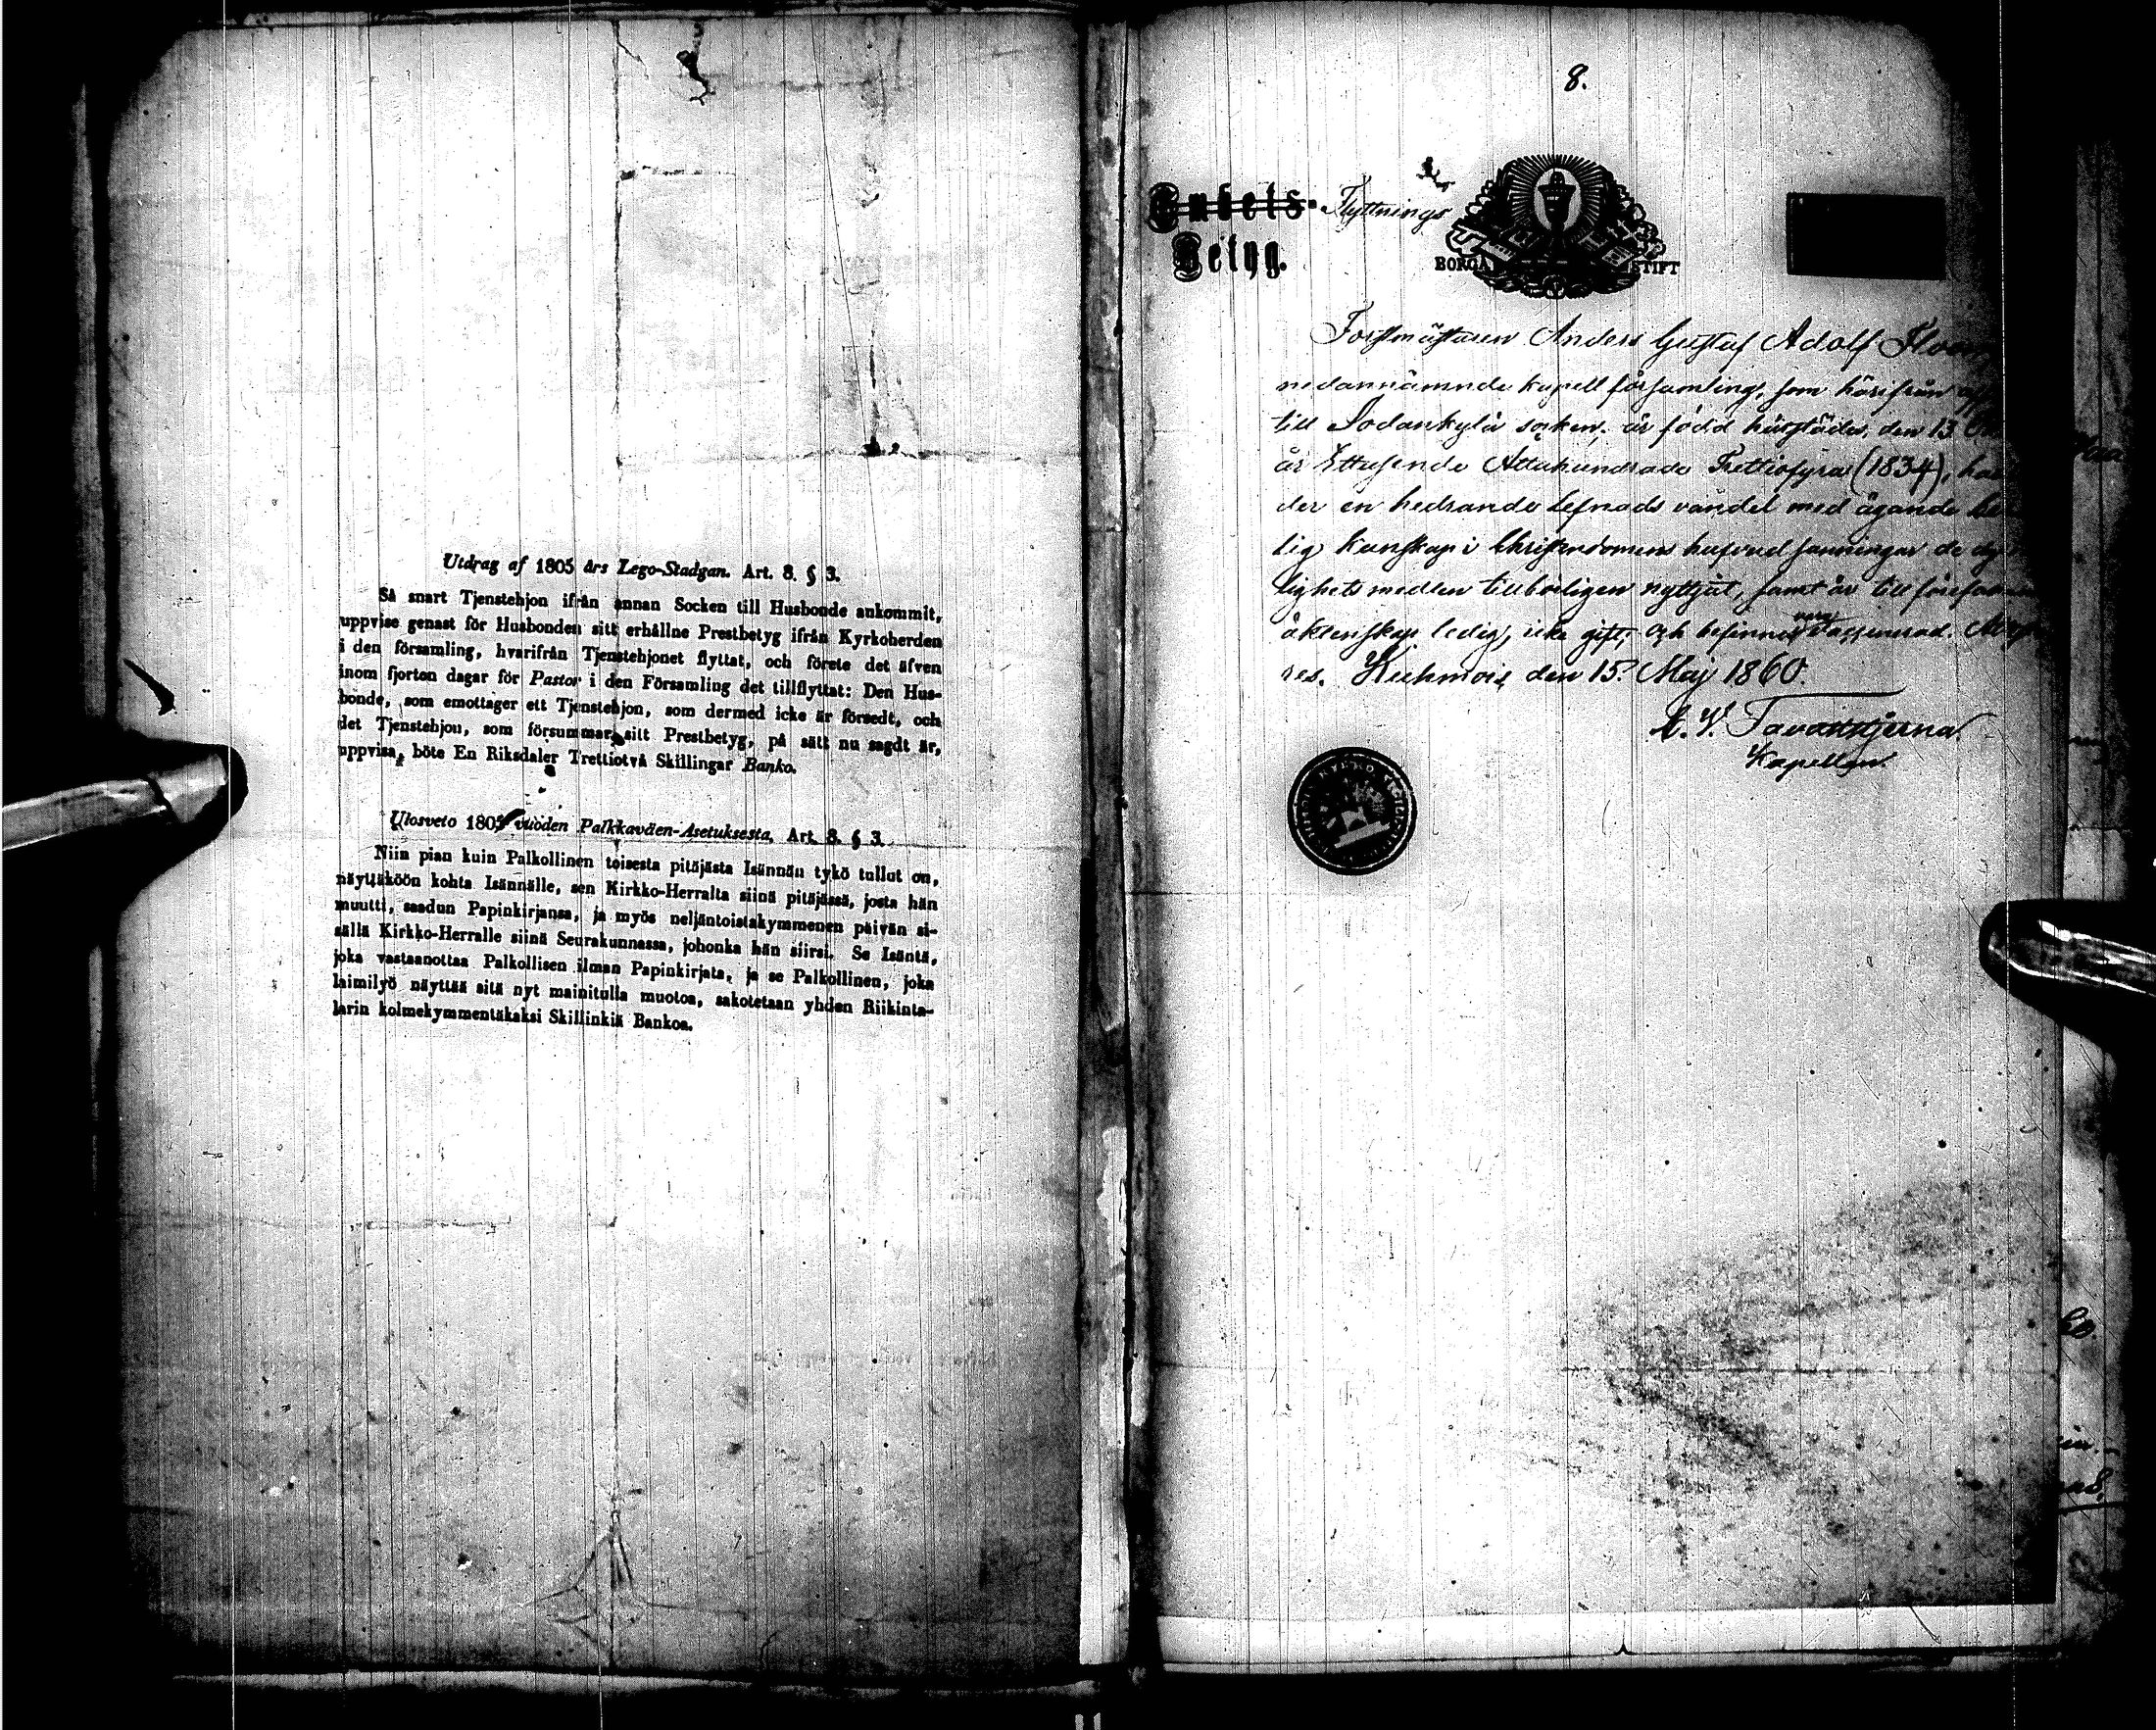 Utdrag af 1805 års Lego-Stadgan. Art. 8. § 3.
Så snart Tjenstehjon ifrån annan Socken till Husbonde ankommit,
uppvise genast för Husbonden sitt erhållne Prestbetyg ifrån Kyrkoherden
i den församling, hvarifrån Tjenstehjonet flyttat, och förete det äfven
inom fjorton dagar för Pastor i den Församling det tillflyttat: Den Hus-
bonde, som emottager ett Tjenstehjon, som dermed icke är försedt, och
det Tjenstehjon, som försummar sitt Prestbetyg, på sätt nu sagdt är,
uppvisa, böte En Riksdaler Trettiotvå Skillingar Banko.
Ulosveto 1805 vuoden Palkkaväen-Asetuksesta, Art. 8. § 3.
Niin pian kuin Palkollinen toisesta pitäjästa Isännän tykö tullut on,
näyttäköön kohta Isännälle, sen Kirkko-Herralta siinä pitäjässä, josta hän
muutti, saadun Papinkirjansa, ja myös neljäntoistakymmenen päivän si-
sällä Kirkko-Herralle siinä Seurakunnassa, johonka hän siirsi. Se Isäntä,
joka vastaanottaa Palkollisen ilman Papinkirjata, ja se Palkollinen, joka
laimilyö näyttää sitä nyt mainitulla muotoa, sakotetaan yhden Riikinta-
larin kolmekymmentäkaksi Skillinkiä Bankoa.
8.
Embets- Flyttnings
Betyg.
BORGÅ STIFT
Forstmästaren Anders Gustaf Adolf
nedannämnde kapell församling, som härifrån
till Sodankylä socken, är född härstädes, den 13
år Ettusende Åttahundrade Trettiofyra (1834),
der en hedrande lefnads vandel med ägande
lig kunskap i Christendomens hufvud sanningar de
lighets medlen tillbörligen nyttjat, samt är till
äktenskap ledig, icke gift, och befinnes vara vaccinerad.
res. Kuhmois den 15 Maj 1860.
A. W. Tavaststjerna.
Kapellan.